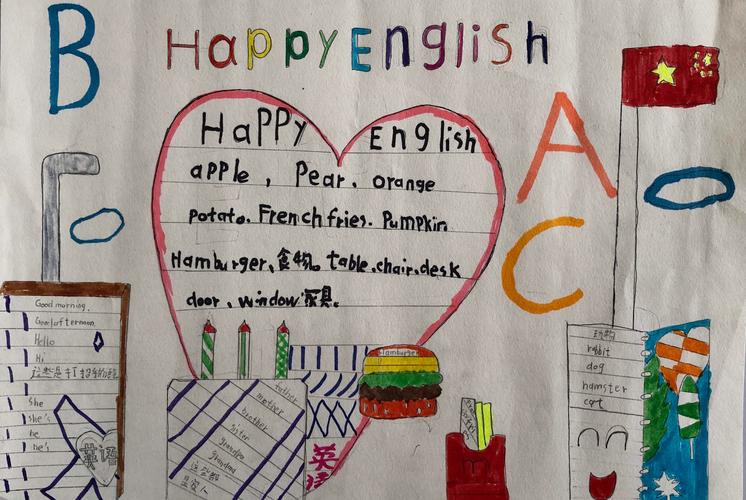 B
Happy English
Happy English
apple, Pear. orange
Potato. French fries. Pumpkin
Hamburger、食物。table.chair.desk
door、window 家具。
A
C
Good morning.
Good afternoon
Hello
Hi
这些是打招呼的语
She
she's
he
he's
英语
father
mother
brother
sister
grandpa
grandma
这些都
是家人
英语
Hamburger
动物
rabbit
dog
hamster
cat